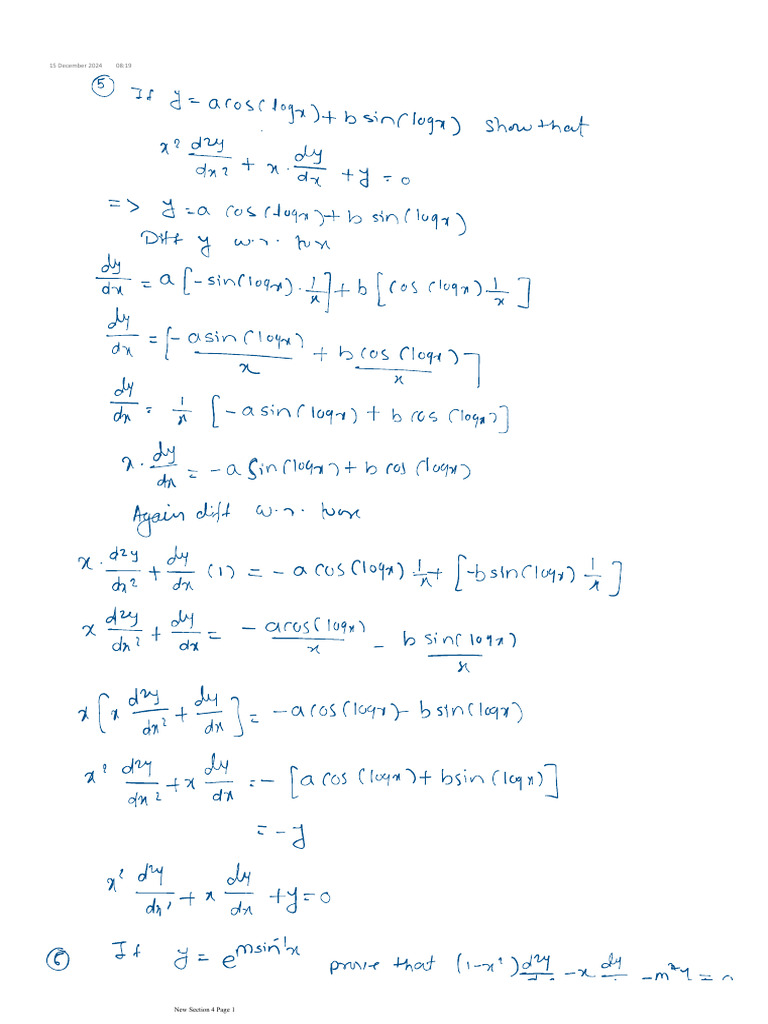 15 December 2024 08:19
⑤ If y = a cos(logx) + b sin(logx) show that
x² d2y/dx² + x · dy/dx + y = 0
=> y = a cos(logx) + b sin(logx)
Diff y w.r. to x
dy/dx = a [-sin(logx) · 1/x] + b [cos(logx) 1/x]
dy/dx = [-a sin(logx)/x + b cos(logx)/x]
dy/dx = 1/x [-a sin(logx) + b cos(logx)]
x · dy/dx = -a sin(logx) + b cos(logx)
Again diff w.r. to x
x · d2y/dx² + dy/dx (1) = -a cos(logx) 1/x + [-b sin(logx) 1/x]
x d2y/dx² + dy/dx = -a cos(logx)/x - b sin(logx)/x
x [x d2y/dx² + dy/dx] = -a cos(logx) - b sin(logx)
x² d2y/dx² + x dy/dx = - [a cos(logx) + b sin(logx)]
= -y
x² d2y/dx² + x dy/dx + y = 0
⑥ If y = e^(m sin⁻¹x) prove that (1-x²) d2y/dx² - x dy/dx - m²y = 0
New Section 4 Page 1